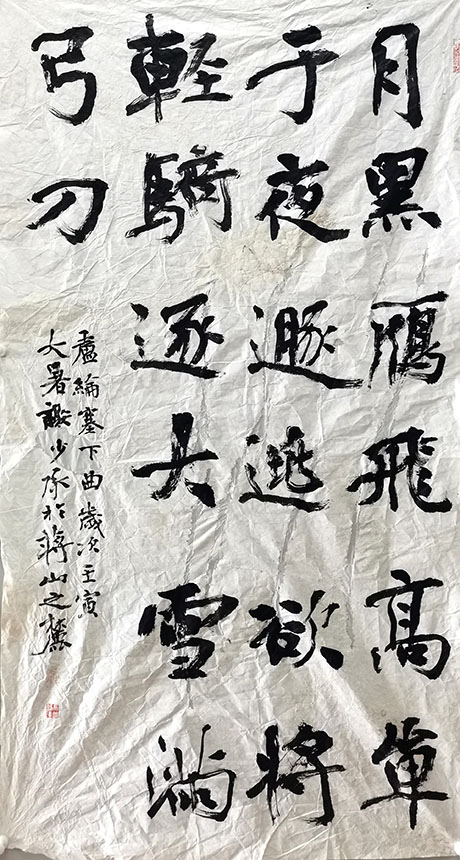 月黑鴈飛高單
于夜遯逃欲將
輕騎逐大雪滿
弓刀
盧綸塞下曲歲次壬寅
大暑謝少承於蔣山之麓